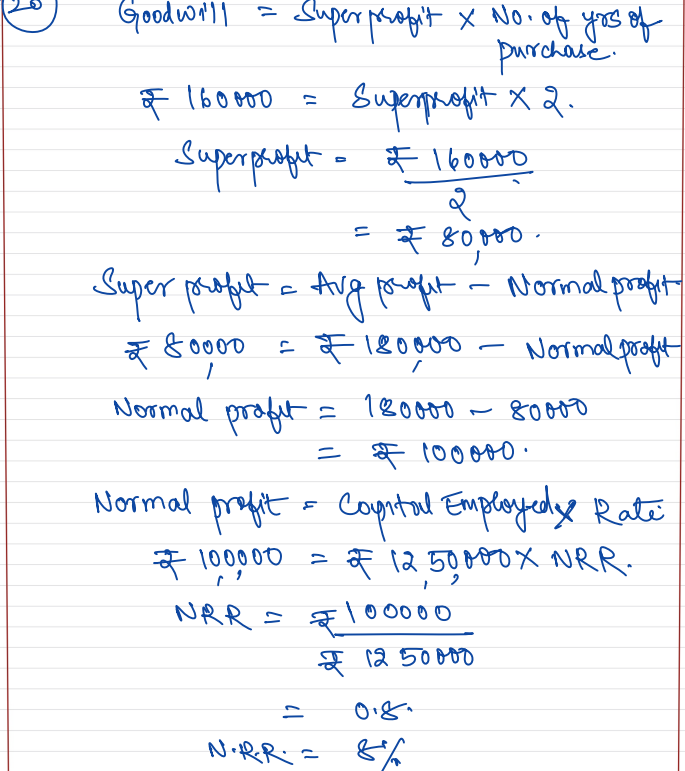 20
Goodwill = Superprofit × No. of yrs of
purchase.
₹ 160000 = Superprofit × 2.
Superprofit = ₹ 160000
2
= ₹ 80,000.
Super profit = Avg profit – Normal profit
₹ 80,000 = ₹ 180,000 – Normal profit
Normal profit = 180000 – 80000
= ₹ 100000.
Normal profit = Capital Employed × Rate
₹ 1,00,000 = ₹ 12,50,000 × NRR.
NRR = ₹ 100000
₹ 12 50000
= 0.8.
N.R.R. = 8%